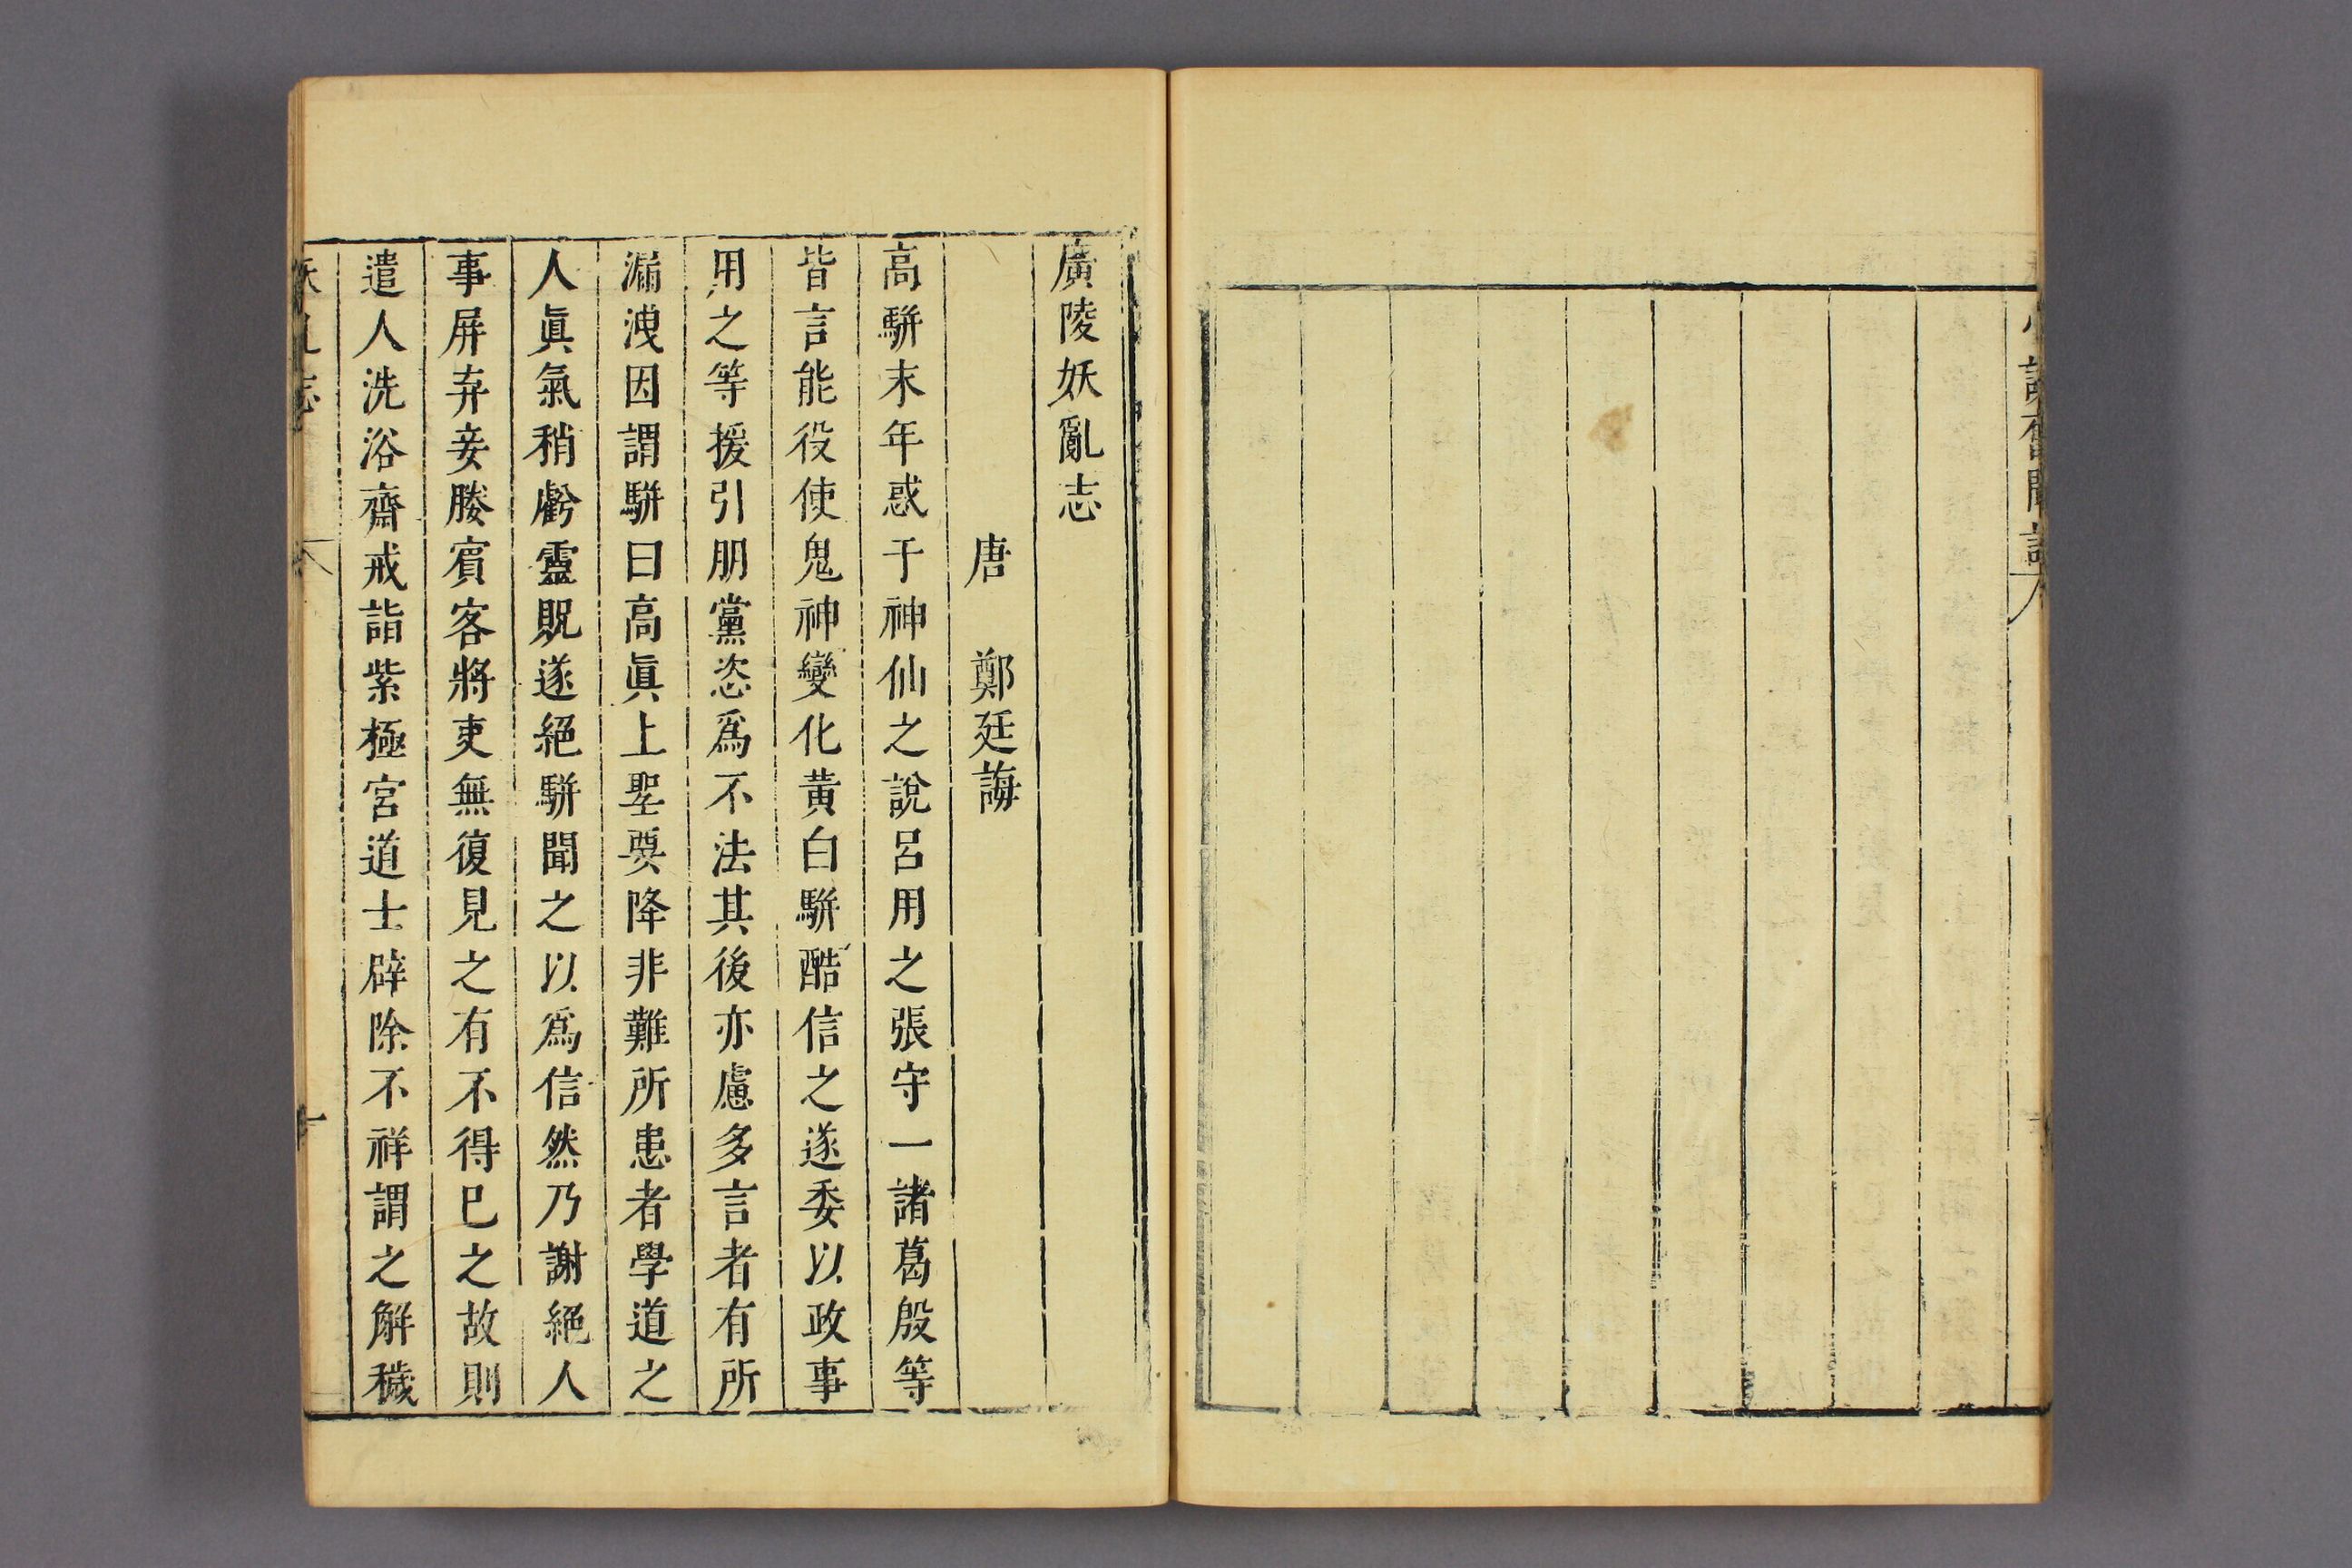 小說舊聞記
廣陵妖亂志
唐 鄭廷誨
高駢末年惑于神仙之說呂用之張守一諸葛殷等
皆言能役使鬼神變化黃白駢酷信之遂委以政事
用之等援引朋黨恣爲不法其後亦慮多言者有所
漏洩因謂駢曰高眞上聖要降非難所患者學道之
人眞氣稍虧靈貺遂絕駢聞之以爲信然乃謝絕人
事屏弃妾媵賓客將吏無復見之有不得巳之故則
遣人洗浴齋戒詣紫極宮道士辟除不祥謂之解穢
妖亂志